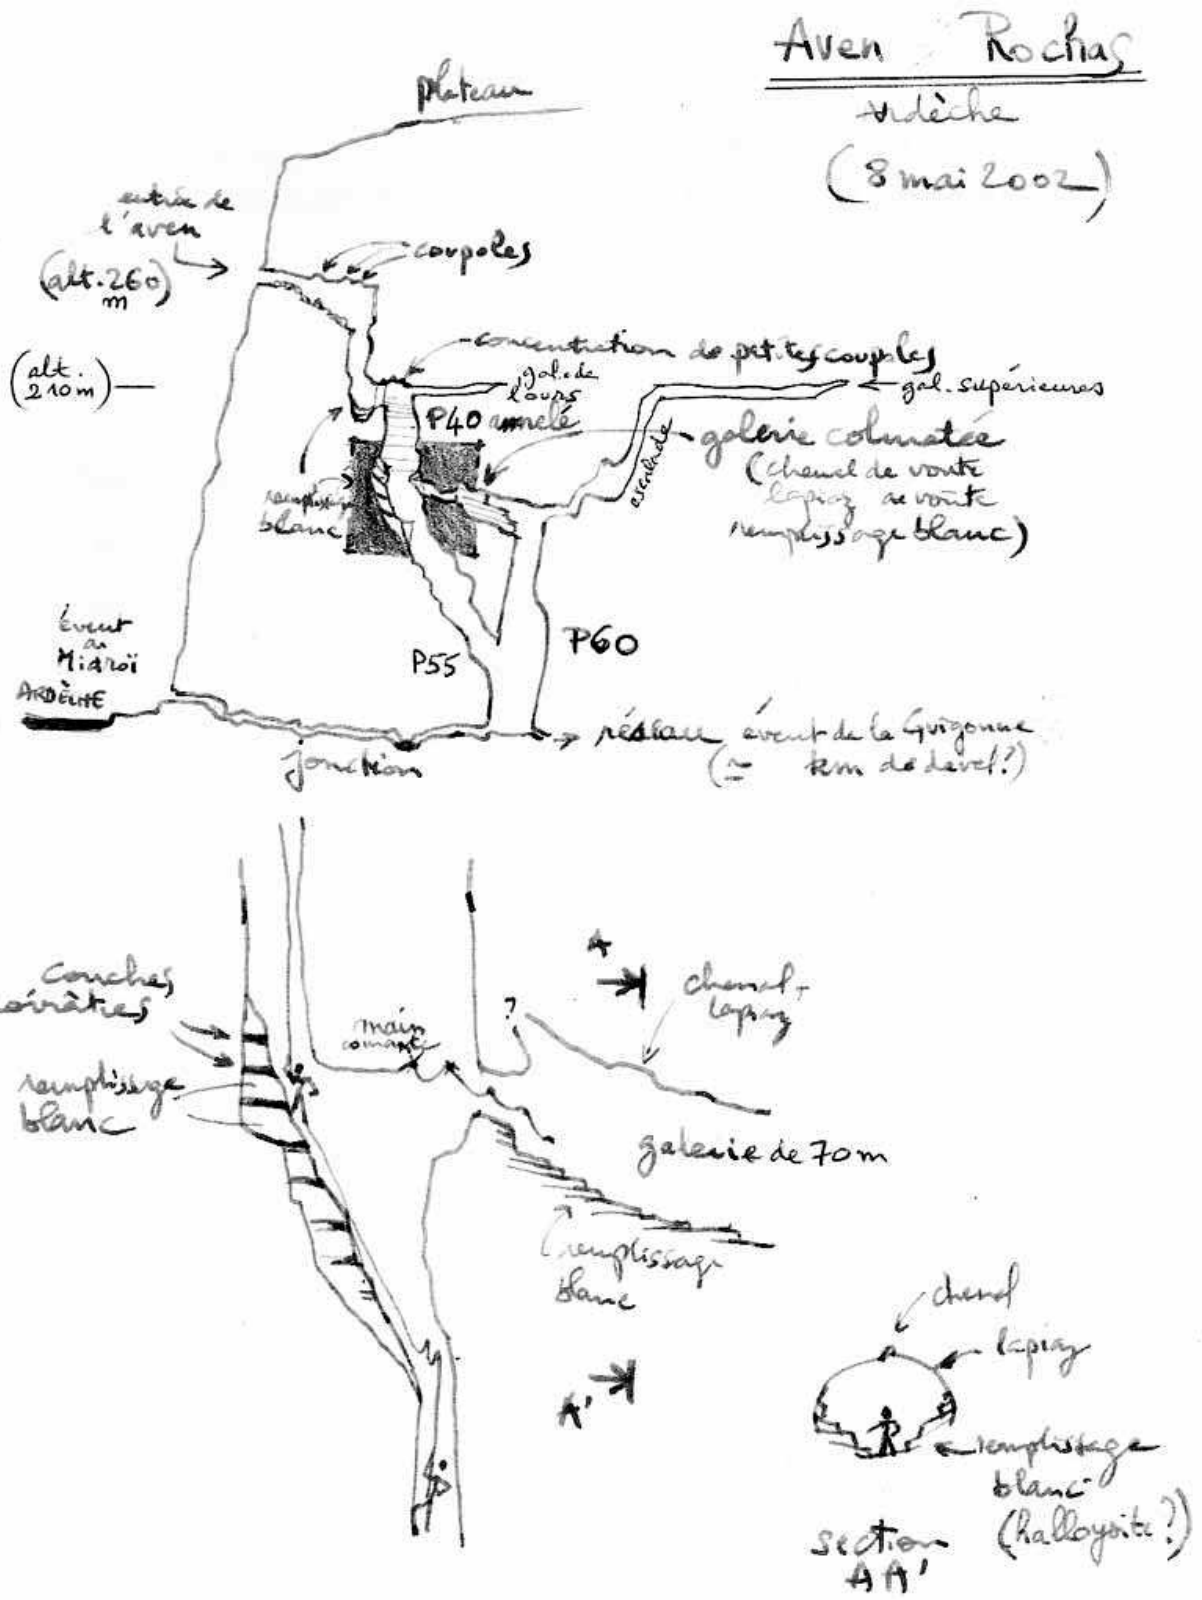 Aven Rochas
Ardèche
(8 mai 2002)
plateau
entrée de
l'aven
(alt. 260
m)
coupoles
concentration de petites coupoles
(alt.
210m)
gal. de
l'ours
gal. supérieures
P40 annelé
escalade
galerie colmatée
(chenal de voute
lapiaz de voûte
remplissage blanc)
remplissage
blanc
évent
de
Midroï
ARDÈCHE
P55
P60
jonction
réseau évent de la Guigonne
(≃ km de devel!)
Couches
remplissage
blanc
main
courante
?
A
chenal-
lapiaz
galerie de 70m
remplissage
blanc
A'
chenal
lapiaz
remplissage
blanc
(halloysite?)
section
AA'